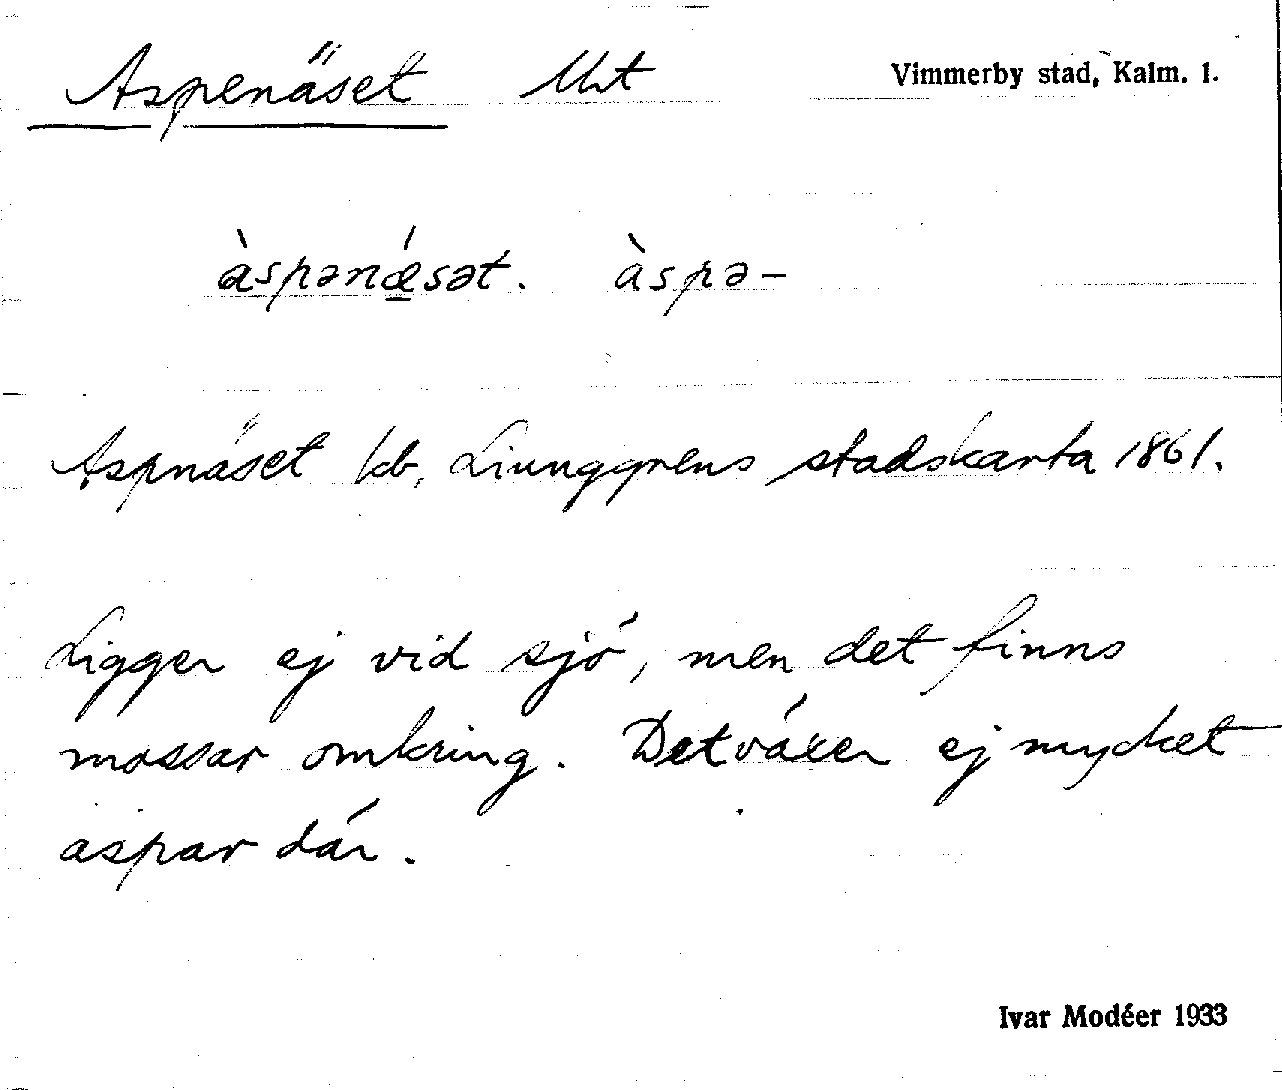 Aspenäset Unt Vimmerby stad, Kalm. l.
àspənǽsət. àspə-
Aspnäset kb, Liunggrens stadskarta 1861.
Ligger ej vid sjö, men det finns
mossar omkring. Det växer ej mycket
aspar där.
Ivar Modéer 1933